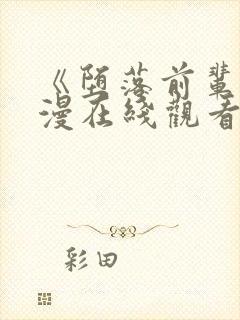 《堕落前辈
漫在线觀看
彩田